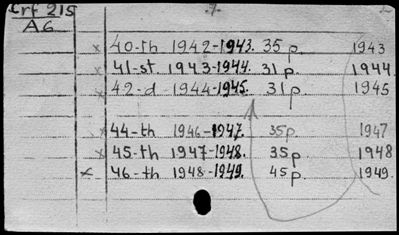 Crf 215
A6
.7.
x 40-th 1942-1943. 35 p. 1943
x 41-st 1943-1944. 31 p. 1944
x 42-d 1944-1945. 31 p. 1945
x 44-th 1946-1947. 35 p. 1947
x 45-th 1947-1948. 35 p. 1948
x 46-th 1948-1949. 45 p. 1949.